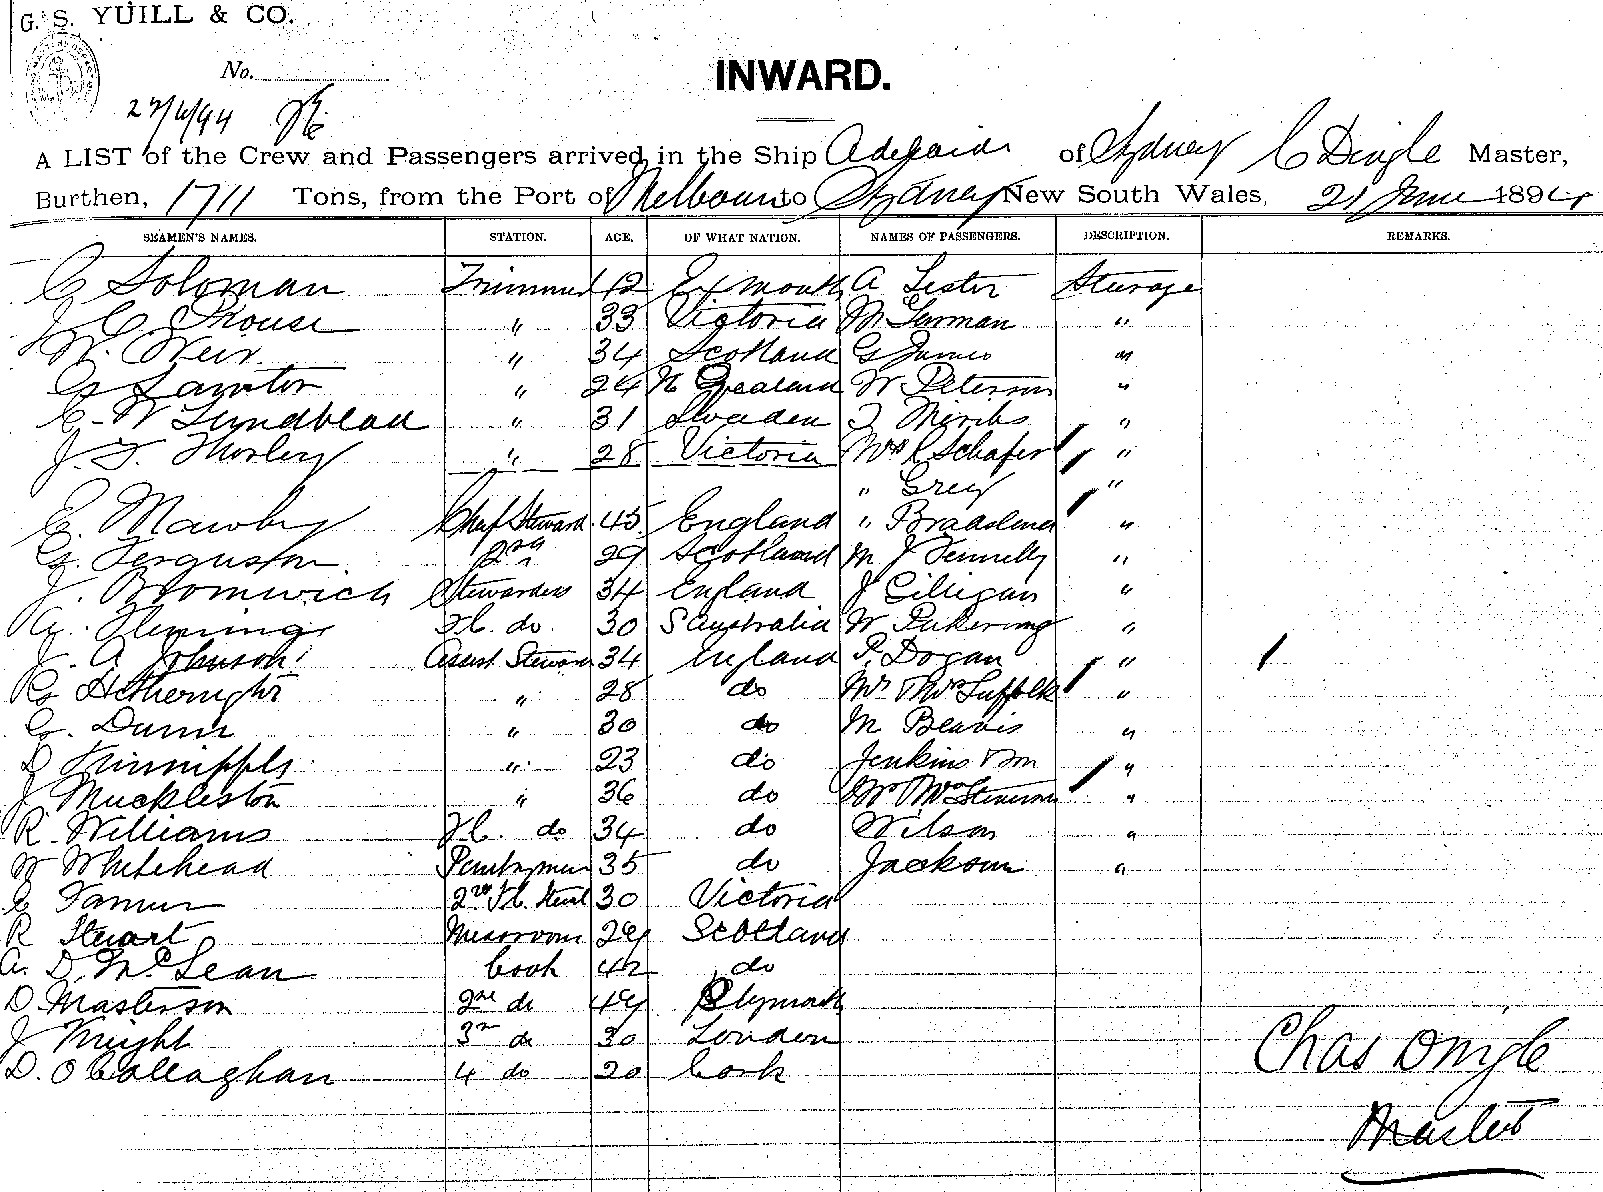 G. S. YUILL & CO.
No.
INWARD.
A LIST of the Crew and Passengers arrived in the Ship Adelaide of Sydney C Dingle Master,
Burthen, 1711 Tons, from the Port of Melbourne to Sydney New South Wales, 21 June 1894
SEAMEN'S NAMES. STATION. AGE. OF WHAT NATION. NAMES OF PASSENGERS. DESCRIPTION. REMARKS.
C Soloman Trimmer 42 Exmouth A Lester Steerage
J C Krouse " 33 Victoria M "
W. Weir " 34 Scotland G James "
G Lawton " 24 N Zealand W Peterson "
C. W Lundblad " 31 Sweden "
J. T. Thorley " 28 Victoria Mrs Schafer "
" Grey "
E. Mawby Chief Steward 45 England " "
G. Ferguson 2nd " 29 Scotland M J Fennelly "
J. Bromwich Stewardess 34 England J Gilligan "
A. Fleming F.C. do. 30 S Australia W Pickering "
J. A. Johnson Assist Steward 34 England P. Dogan "
" 28 do Mr & Mrs Suffolk "
G. Dunn " 30 do M Beavis "
D " 23 do Jenkins & Son "
J Muckleston " 36 do Mr & Mrs Stevenson "
R. Williams F.C. do 34 do Wilson "
W Whitehead Pantryman 35 do Jackson "
E 2nd F.C. Stewd 30 Victoria
R Stewart Messroom 29 Scotland
A. D. McLean Cook 42 do
D. Masterson 2nd do 49 Plymouth
J Knight 3rd do 30 London
D. O Callaghan 4 do 20 Cork
Chas Dingle
Master